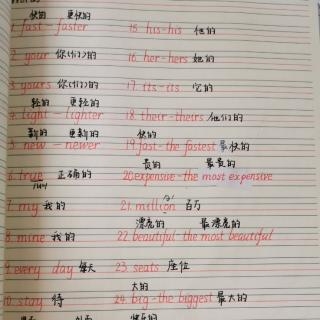 快的 更快的
1. fast - faster 15. his - his 他的
2. your 你(们)的 16. her - hers 她的
3. yours 你(们)的 17. its - its 它的
轻的 更轻的
4. light - lighter 18. their - theirs 他们的
新的 更新的 快的
5. new - newer 19. fast - the fastest 最快的
贵的 最贵的
6. true 正确的 20. expensive - the most expensive
7. my 我的 21. million 百万
漂亮的 最漂亮的
8. mine 我的 22. beautiful - the most beautiful
9. every day 每天 23. seats 座位
大的
10. stay 待 24. big - the biggest 最大的